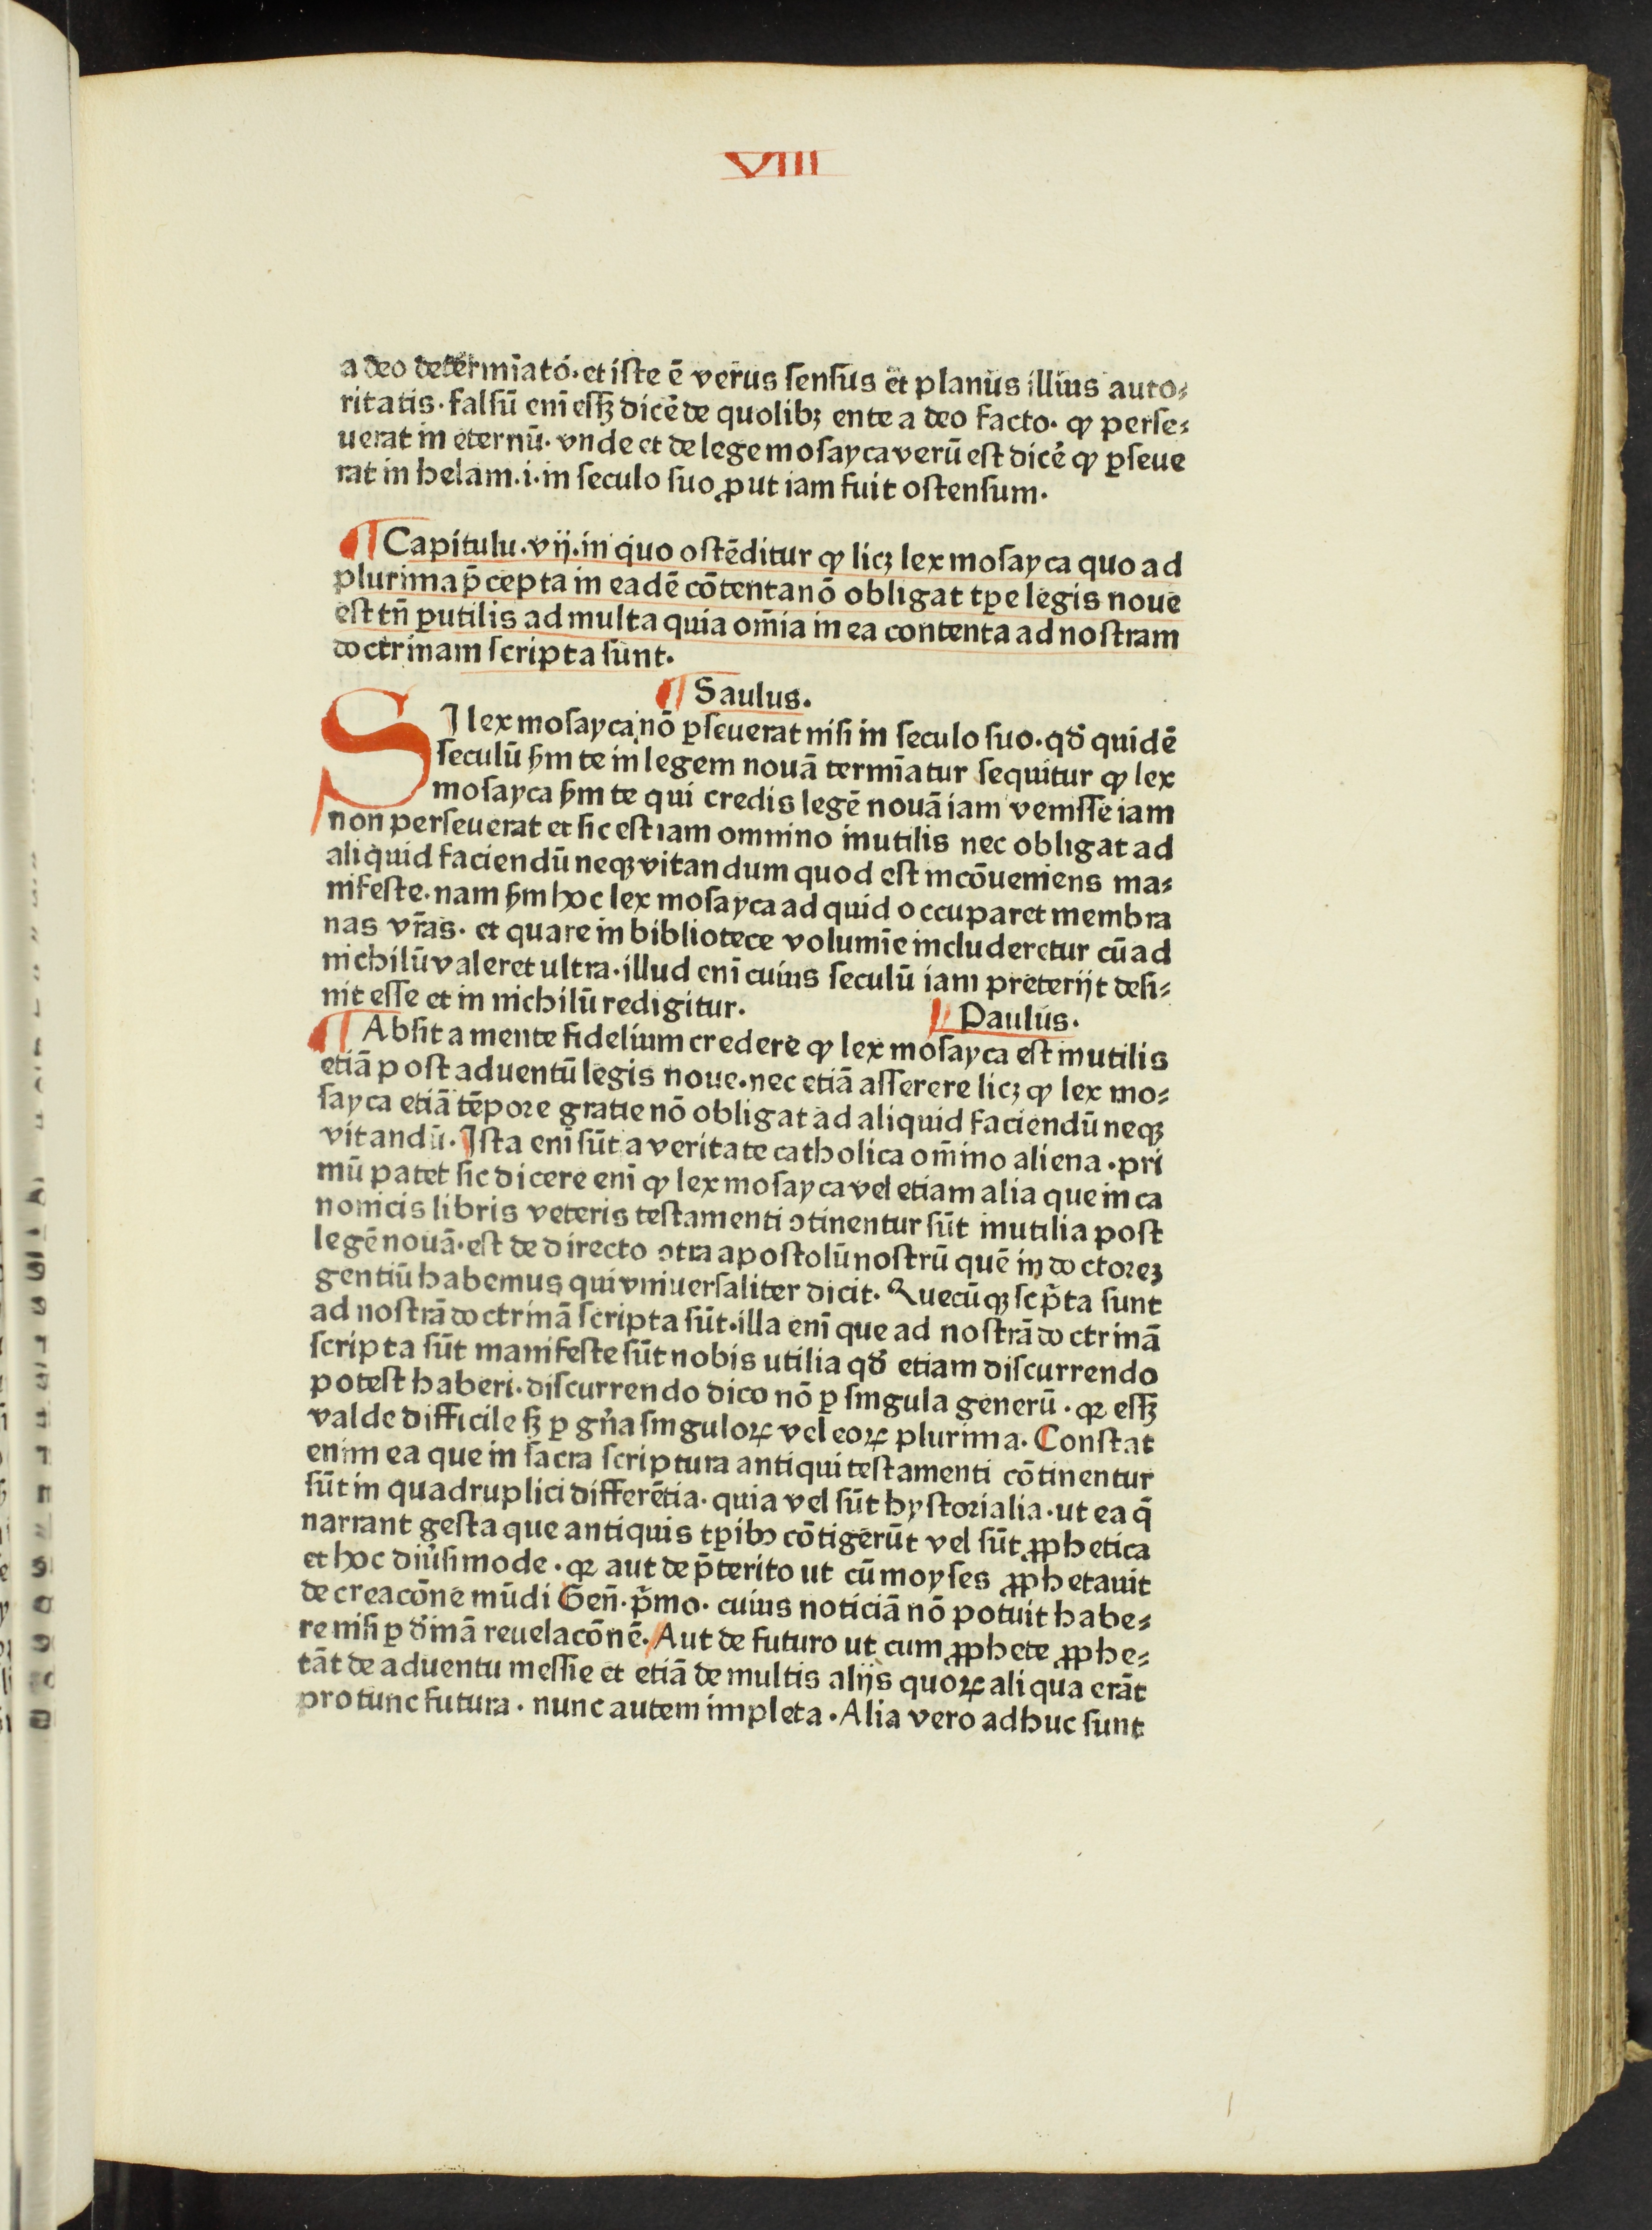 VIII
a deo determīato. et iste ē verus sensus et planus illius auto⸗
ritatis. falsū enī essꝫ dicē de quolibꝫ ente a deo facto. ꝙ perse⸗
uerat in eternū. vnde et de lege mosayca verū est dicē ꝙ ꝑseue
rat in helam .i. in seculo suo ꝓut iam fuit ostensum.
¶ Capitulu. vij. in quo ostēditur ꝙ licꝫ lex mosayca quo ad
plurima p̄cepta in eadē cōtenta nō obligat tꝑe legis noue
est tn̄ ꝑutilis ad multa quia om̄ia in ea contenta ad nostram
doctrinam scripta sunt.
¶ Saulus.
SI lex mosayca nō ꝑseuerat nisi in seculo suo. qđ quidē
seculū ẜm te in legem nouā termīatur sequitur ꝙ lex
mosayca ẜm te qui credis legē nouā iam venisse iam
non perseuerat et sic est iam omnino inutilis nec obligat ad
aliquid faciendū neqꝫ vitandum quod est incōueniens ma⸗
nifeste. nam ẜm hoc lex mosayca ad quid occuparet membra
nas vr̄as. et quare in bibliotece volumīe includeretur cū ad
nichilū valeret ultra. illud enī cuius seculū iam preterijt desi⸗
nit esse et in nichilū redigitur.
¶ Paulus.
¶ Absit a mente fidelium credere ꝙ lex mosayca est inutilis
etiā post aduentū legis noue. nec etiā asserere licꝫ ꝙ lex mo⸗
sayca etiā tēpore gratie nō obligat ad aliquid faciendū neqꝫ
vitandū. Ista enī sūt a veritate catholica om̄ino aliena. pri
mū patet sic dicere enī ꝙ lex mosayca vel etiam alia que in ca
nonicis libris veteris testamenti ↄtinentur sūt inutilia post
legē nouā. est de directo ↄtra apostolū nostrū quē in doctoreꝫ
gentiū habemus qui vniuersaliter dicit. Quecūqꝫ scp̄ta sunt
ad nostrā doctrinā scripta sūt. illa enī que ad nostrā doctrinā
scripta sūt manifeste sūt nobis utilia qđ etiam discurrendo
potest haberi. discurrendo dico nō ꝑ singula generū. qꝛ essꝫ
valde difficile sꝫ ꝑ gn̄a singuloꝝ vel eoꝝ plurima. Constat
enim ea que in sacra scriptura antiqui testamenti cōtinentur
sūt in quadruplici differētia. quia vel sūt hystorialia. ut ea q̄
narrant gesta que antiquis tꝑibꝰ cōtigerūt vel sūt ꝓphetica
et hoc diūsimode. qꝛ aut de p̄terito ut cū moyses ꝓphetauit
de creacōne mūdi Gen̄. p̄mo. cuius noticiā nō potuit habe⸗
re nisi ꝑ đinā reuelacōnē. Aut de futuro ut cum ꝓphete ꝓphe⸗
tāt de aduentu messie et etiā de multis alijs quoꝝ aliqua erāt
pro tunc futura. nunc autem impleta. Alia vero adhuc sunt